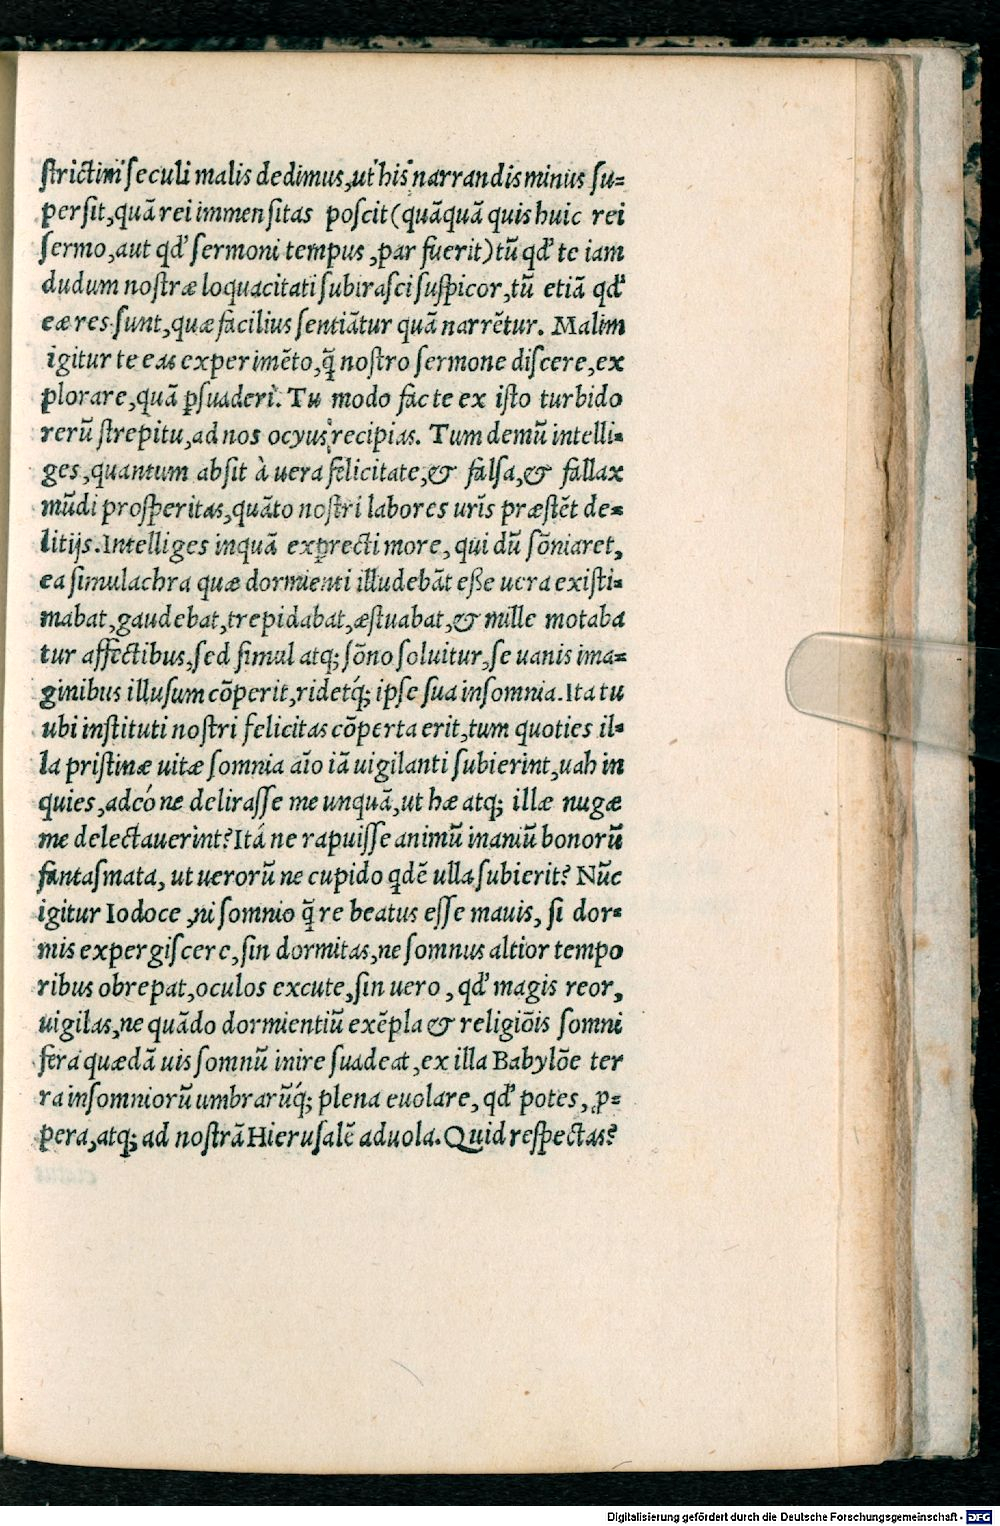 strictim seculi malis dedimus,ut his narrandis minus su-
persit,quã rei immensitas poscit(quãquã quis huic rei
sermo,aut qd̕ sermoni tempus,par fuerit)tũ qd̕ te iam
dudum nostræ loquacitati subirasci suspicor,tũ etiã qd̕
eæ res sunt,quæ facilius sentiãtur quã narrẽtur. Malim
igitur te eas experimẽto,q̃ nostro sermone discere,ex
plorare,quã ꝑsuaderi. Tu modo fac te ex isto turbido
rerũ strepitu,ad nos ocyus recipias. Tum demũ intelli-
ges,quantum absit à uera felicitate,& falsa,& fallax
mũdi prosperitas,quãto nostri labores urĩs præstẽt de-
litijs.Intelliges inquã exꝑrecti more, qui dũ sõniaret,
ea simulachra quæ dormienti illudebãt eße uera existi-
mabat,gaudebat,trepidabat,æstuabat,& mille motaba
tur affectibus,sed simul atq; sõno soluitur,se uanis ima-
ginibus illusum cõperit,ridetq́; ipse sua insomnia.Ita tu
ubi instituti nostri felicitas cõperta erit,tum quoties il-
la pristinæ uitæ somnia aĩo iã uigilanti subierint,uah in
quies,adeó ne delirasse me unquã,ut hæ atq; illæ nugæ
me delectauerint?Itá ne rapuisse animũ inaniũ bonorũ
fantasmata, ut uerorũ ne cupido qdẽ ulla subierit? Nũc
igitur Iodoce ,ni somnio q̃ re beatus esse mauis, si dor-
mis expergiscere,sin dormitas,ne somnus altior tempo
ribus obrepat,oculos excute,sin uero , qd̕ magis reor,
uigilas,ne quãdo dormientiũ exẽpla & religiõis somni
fera quædã uis somnũ inire suadeat,ex illa Babylõe ter
ra insomniorũ umbrarũq́; plena euolare, qd̕ potes, ꝓ-
pera,atq; ad nostrã Hierusalẽ aduola.Quid respectas?
Digitalisierung gefördert durch die Deutsche Forschungsgemeinschaft - DFG